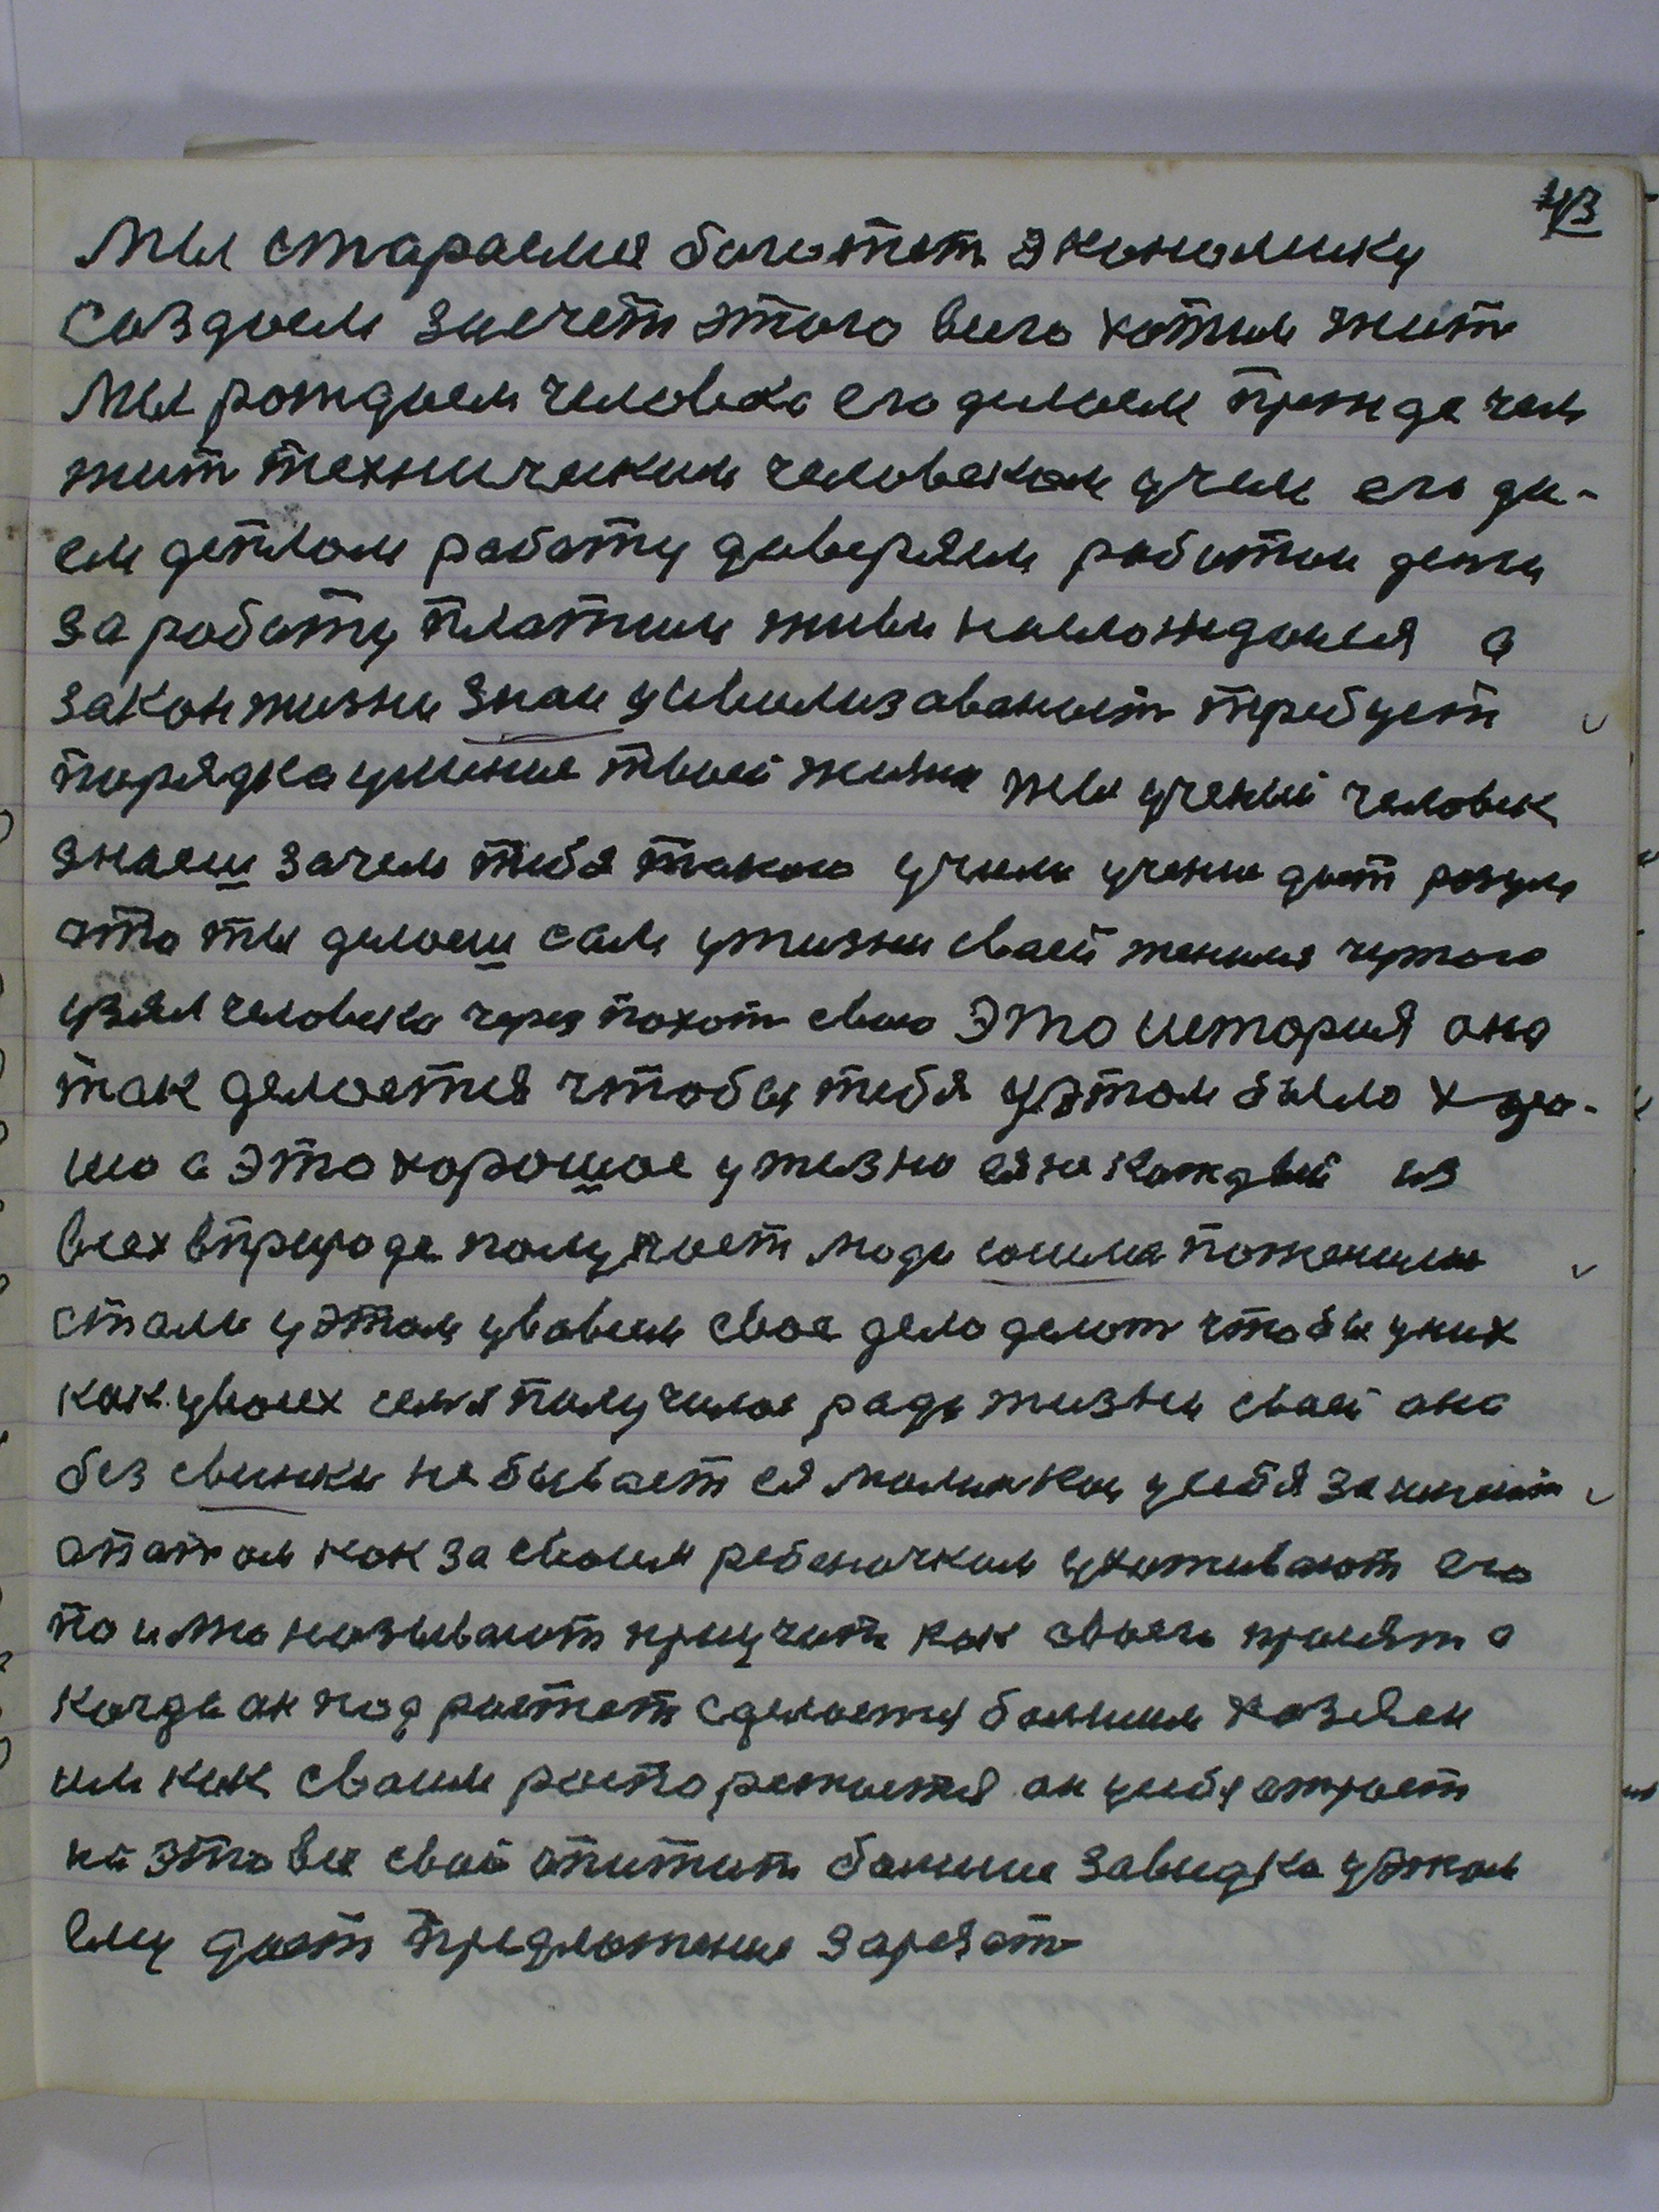 43
Мы стараемся богатет экономику
создаем засчет этого всего хотим жит
Мы рождаем человека его делаем прежде чем
жит техническим человеком учим его да-
ем деплом работу даверяем работаи денги
за работу платим живи наслождаися а
закон жизни знаи цивилизаваност требует
порядка умение твоей жизни ты ученый человек
знаеш зачем тебя такого учили учение дает розум
что ты делаеш сам у жизни своей женился чужого
узял человека через похот свою Это история она
так делается чтобы тебя у этом было хоро-
шо а это хорошое у жизно ея не каждый из
всех в природе получает люди сошлися поженились
стали у этом увовсем свое дело делат чтобы у них
как у всех семя получилас ради жизни своей она
без свинки не бывает ея маленкои у себя
а потом как за своим ребеночком ухаживают его
по имю называют приучат как своего примят а
когда он подрастет сделается болшим хозяен
им как своим распоряжается он у себя
на это все свой апитит болшие у этом
ему дает предложение зарезат